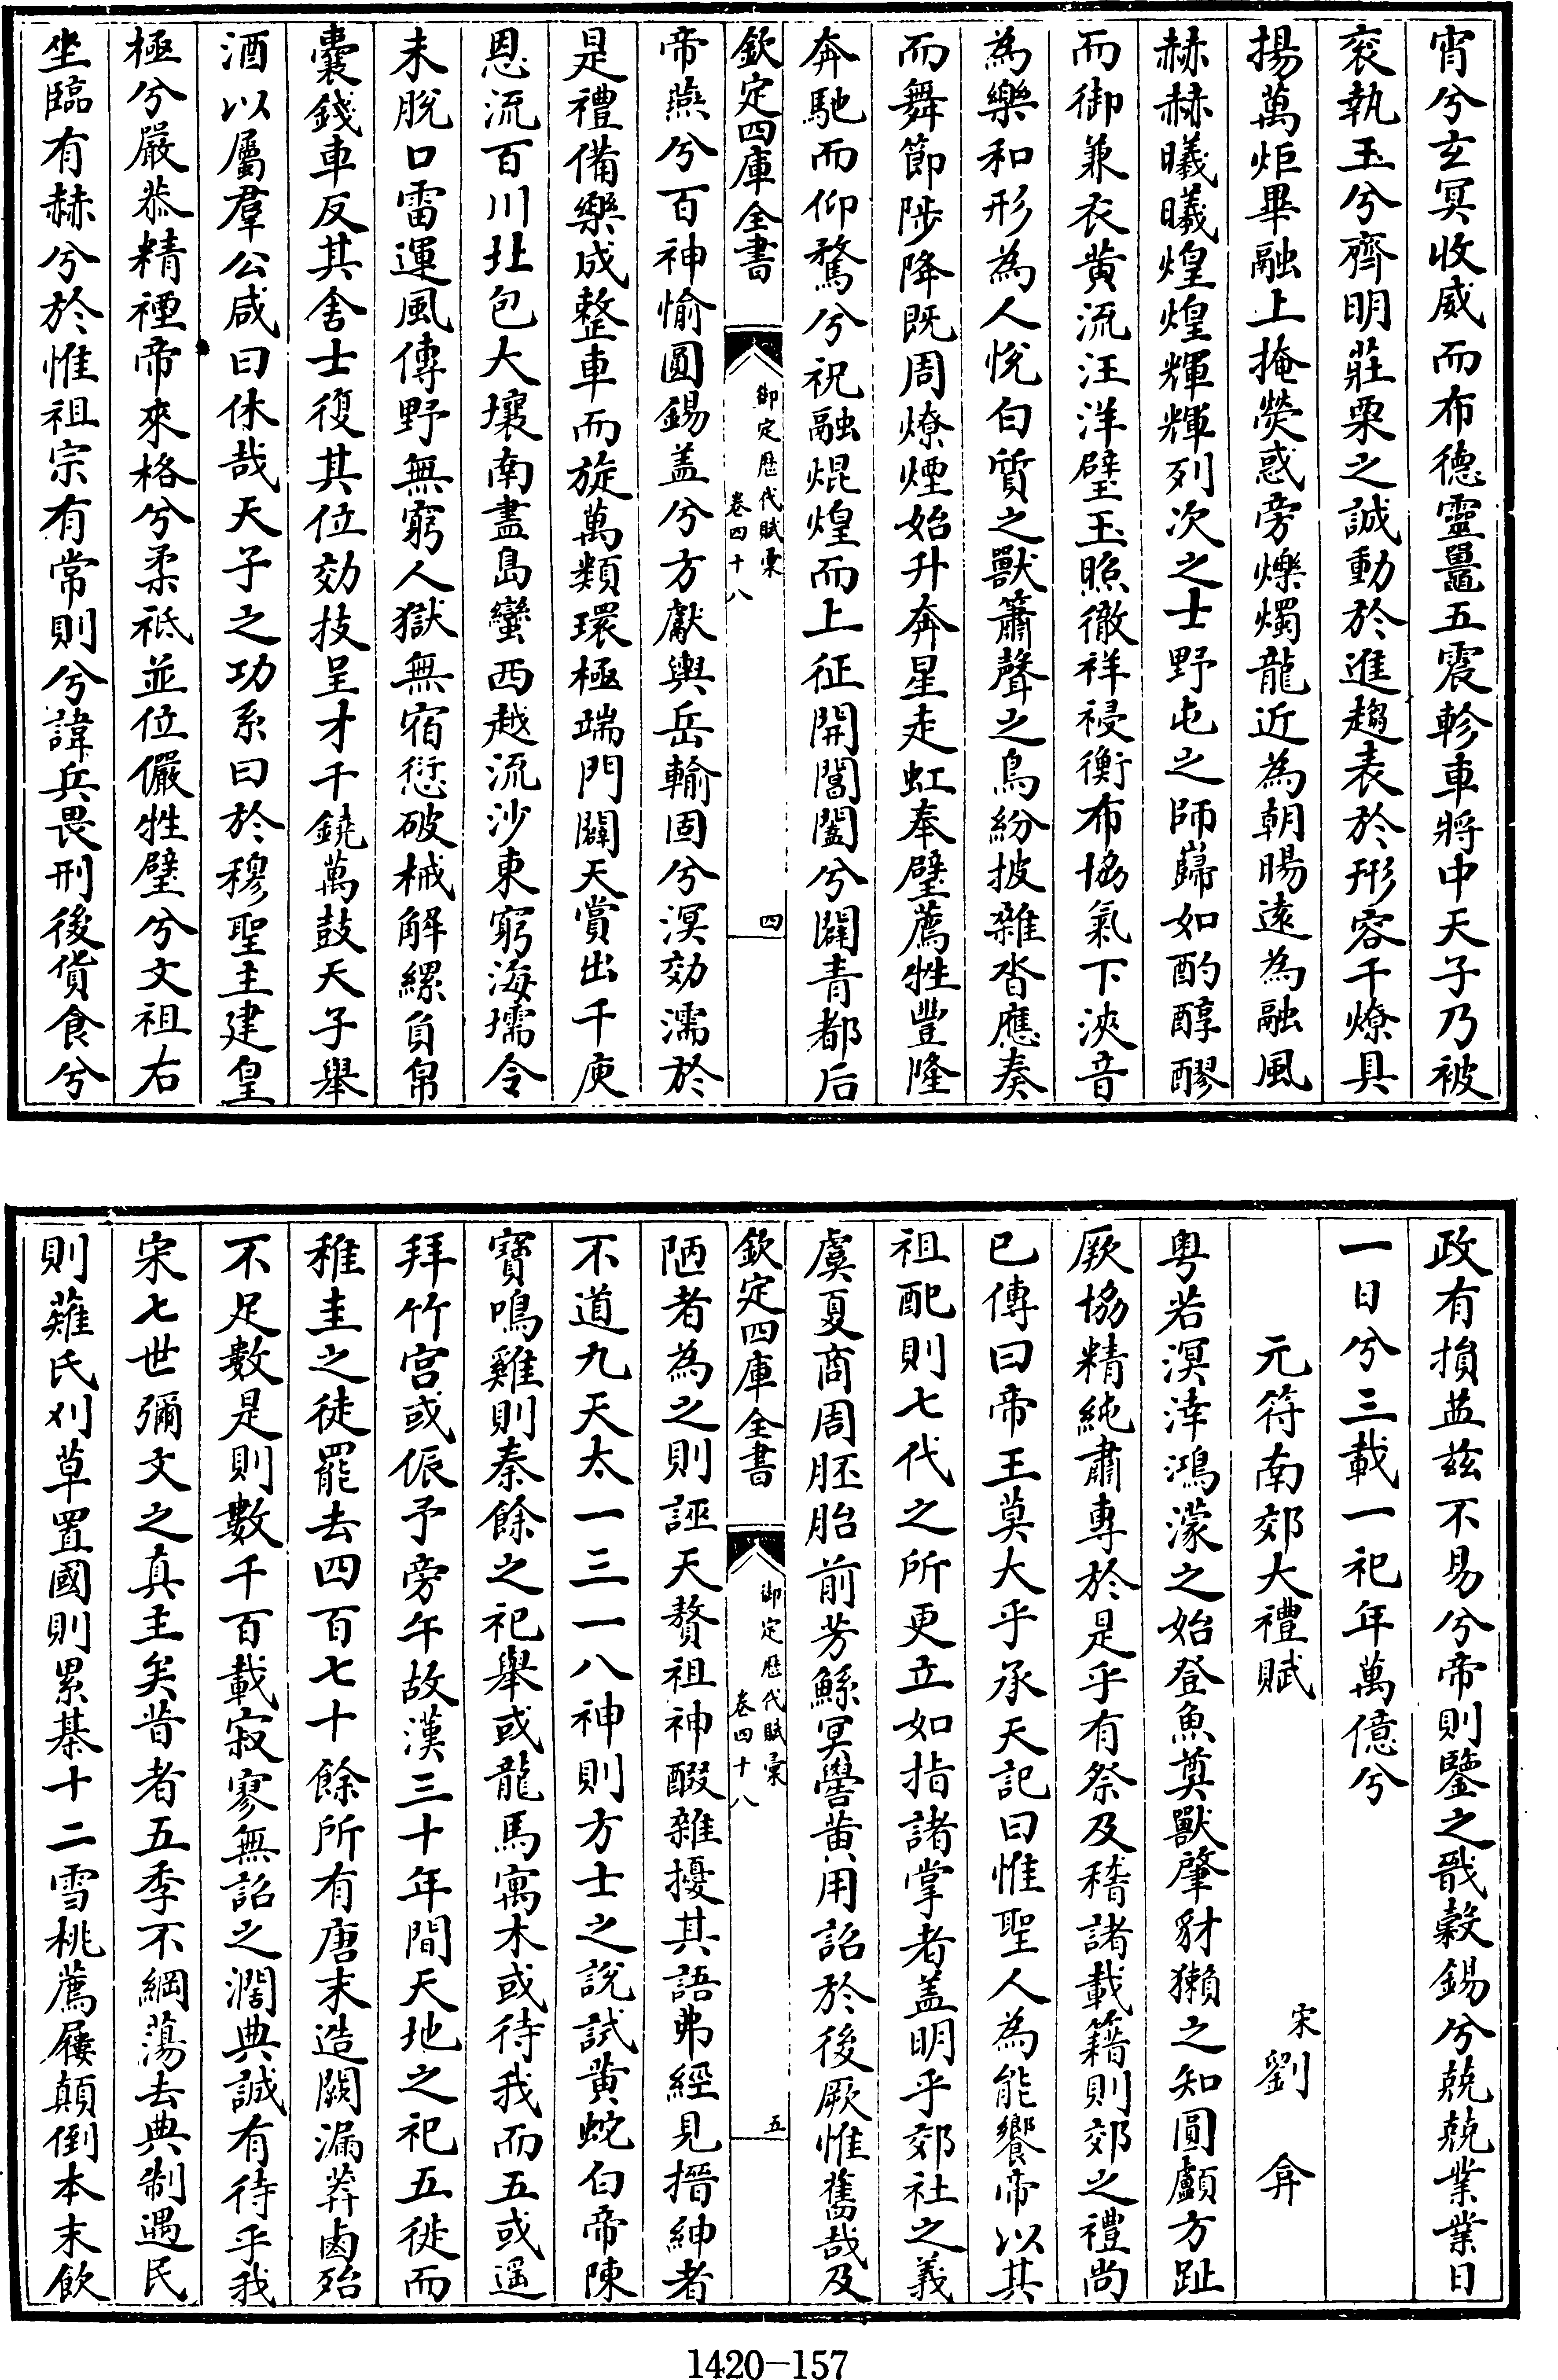 宵兮玄冥收威而布德靈鼉五震軫車將中天子乃被
衮執玉兮齊明莊栗之誠動於進趨表於形容千燎具
揚萬炬畢融上掩熒惑旁爍燭龍近為朝暘遠為融風
赫赫曦曦煌煌輝輝列次之士野屯之師巋如酌醇醪
而御兼衣黄流汪洋璧玉照徹祥祲衡布協氣下浹音
為樂和形為人悅白質之獸簫聲之鳥紛披雜沓應奏
而舞節陟降既周燎煙始升奔星走虹奉璧薦牲豐隆
奔馳而仰騖兮祝融焜煌而上征開閶闔兮闢青都后
欽定四庫全書
御定歴代賦彙
卷四十八
四
帝燕兮百神愉圓錫盖兮方獻輿岳輸固兮溟効濡於
是禮備樂成整車而旋萬類環極端門闢天賞出千庾
恩流百川北包大壤南盡島蠻西越流沙東窮海壖令
未脫口雷運風傳野無窮人獄無宿愆破械解縲負帛
囊錢車反其舍士復其位効技呈才千鐃萬鼓天子舉
酒以屬羣公咸曰休哉天子之功系曰於穆聖主建皇
極兮嚴恭精禋帝來格兮柔祗並位儼牲璧兮文祖右
坐臨有赫兮於惟祖宗有常則兮諱兵畏刑後貨食兮
政有損益茲不易兮帝則鑒之戩穀錫兮兢兢業業日
一日兮三載一祀年萬億兮
元符南郊大禮賦
宋劉弇
粤若溟涬鴻濛之始登魚奠獸肇豺獺之知圓顱方趾
厥協精純肅專於是乎有祭及稽諸載籍則郊之禮尚
已傳曰帝王莫大乎承天記曰惟聖人為能饗帝以其
祖配則七代之所更立如指諸掌者盖明乎郊社之義
虞夏商周胚胎前芳鯀冥嚳黄用詔於後厥惟舊哉及
欽定四庫全書
御定歴代賦彙
卷四十八
五
陋者為之則誣天贅祖神醊雜擾其語弗經見搢紳者
不道九天太一三一八神則方士之說試黄蛇白帝陳
寶鳴雞則秦餘之祀舉或龍馬寓木或待我而五或遥
拜竹宫或侲予旁午故漢三十年間天地之祀五徙而
稚圭之徒罷去四百七十餘所有唐末造闕漏莽鹵殆
不足數是則數千百載寂寥無詔之濶典誠有待乎我
宋七世彌文之真主矣昔者五季不綱蕩去典制遇民
則薙氏刈草置國則累棊十二雪桃薦屨顛倒本末飲
1420-157